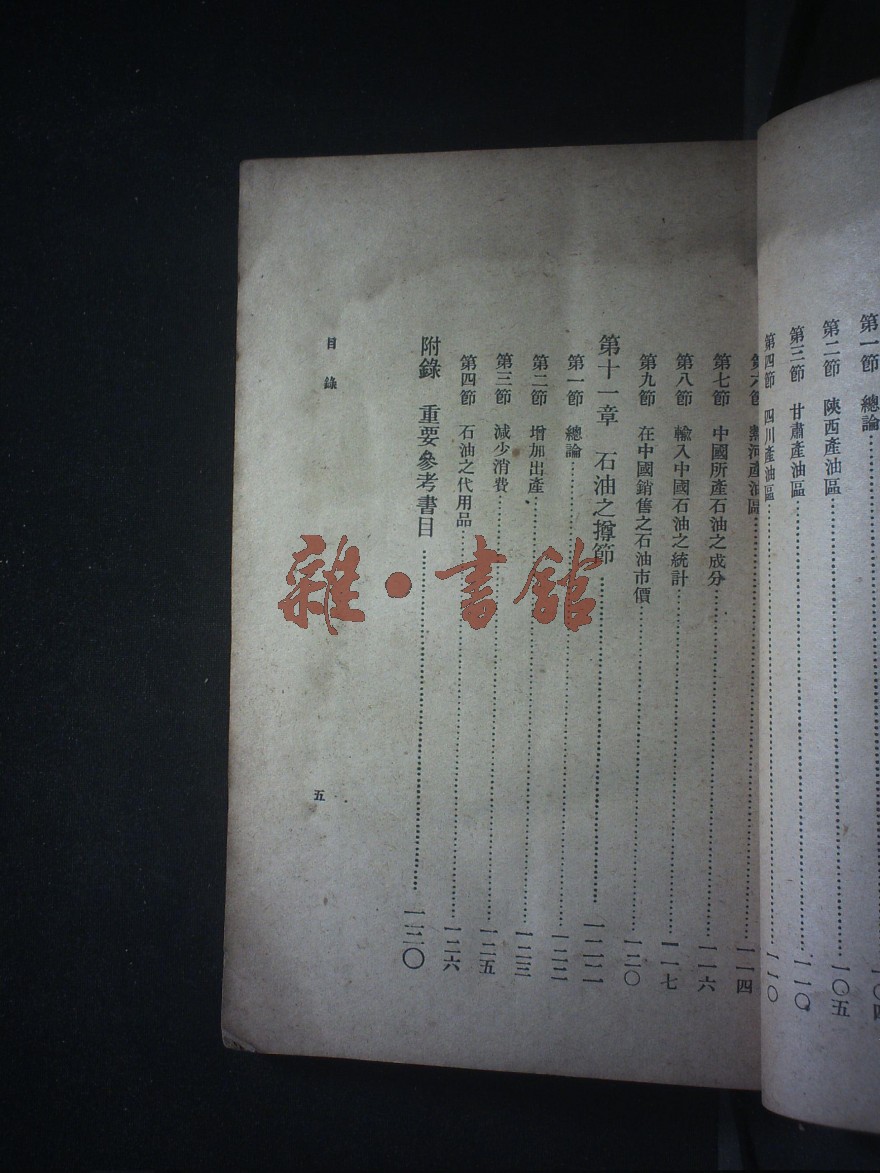 第一節 總論……一〇四
第二節 陝西產油區……一〇五
第三節 甘肅產油區……一一〇
第四節 四川產油區……一一〇
第六節 熱河產油區……一一四
第七節 中國所產石油之成分……一一六
第八節 輸入中國石油之統計……一一七
第九節 在中國銷售之石油市價……一二〇
第十一章 石油之撙節……一二二
第一節 總論……一二二
第二節 增加出產……一二三
第三節 減少消費……一二五
第四節 石油之代用品……一二六
附錄 重要參考書目……一三〇
目錄
五
雜·書館